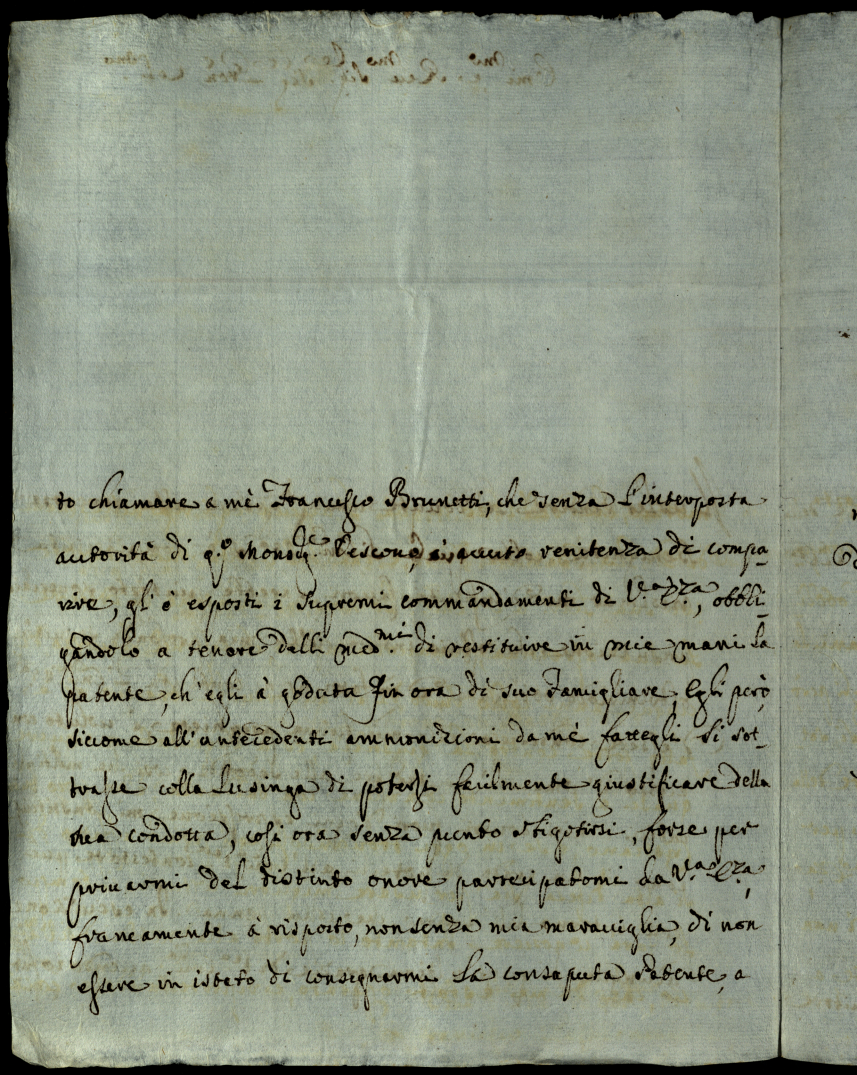 to chiamare a mè Francesco Brunetti, che senza l'interposta
autorità di q.to Mons.re Vescovo, à avuto renitenza di compa-
rire, gl'ò esposti i Supremi commandamenti di V.a E.za, obbli-
gandolo a tenore delli med.mi di restituire in mie mani la
patente, ch'egli à goduta fin ora di suo Famigliare, Egli però,
siccome all'antecedenti ammonizioni da mè fattegli si sot-
trasse colla Lusinga di potersi facilmente giustificare della
sua condotta, così ora senza punto sbigotirsi, forse per
privarmi del distinto onore partecipatomi da V.a E.za,
francamente à risposto, non senza mia maraviglia, di non
essere in istato di consegnarmi la consaputa Patente, a